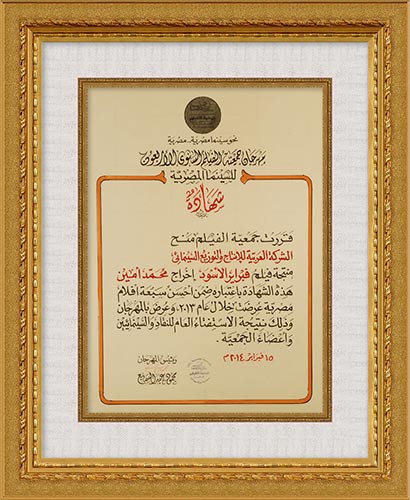 نحو سينما مصرية.. مصرية
مهرجان جمعية الفيلم السنوى الأربعون
للسينما المصرية
شهادة
قررت جمعية الفيلم منح
الشركة العربية للإنتاج والتوزيع السينمائى
منتجة فيلم فبراير الأسود إخراج محمد أمين
هذه الشهادة باعتباره ضمن أحسن سبعة أفلام
مصرية عرضت خلال عام ٢٠١٣ وعرض بالمهرجان
وذلك نتيجة الاستفتاء العام للنقاد والسينمائيين
وأعضاء الجمعية.
١٥ فبراير ٢٠١٤
رئيس المهرجان
محمود عبد السميع